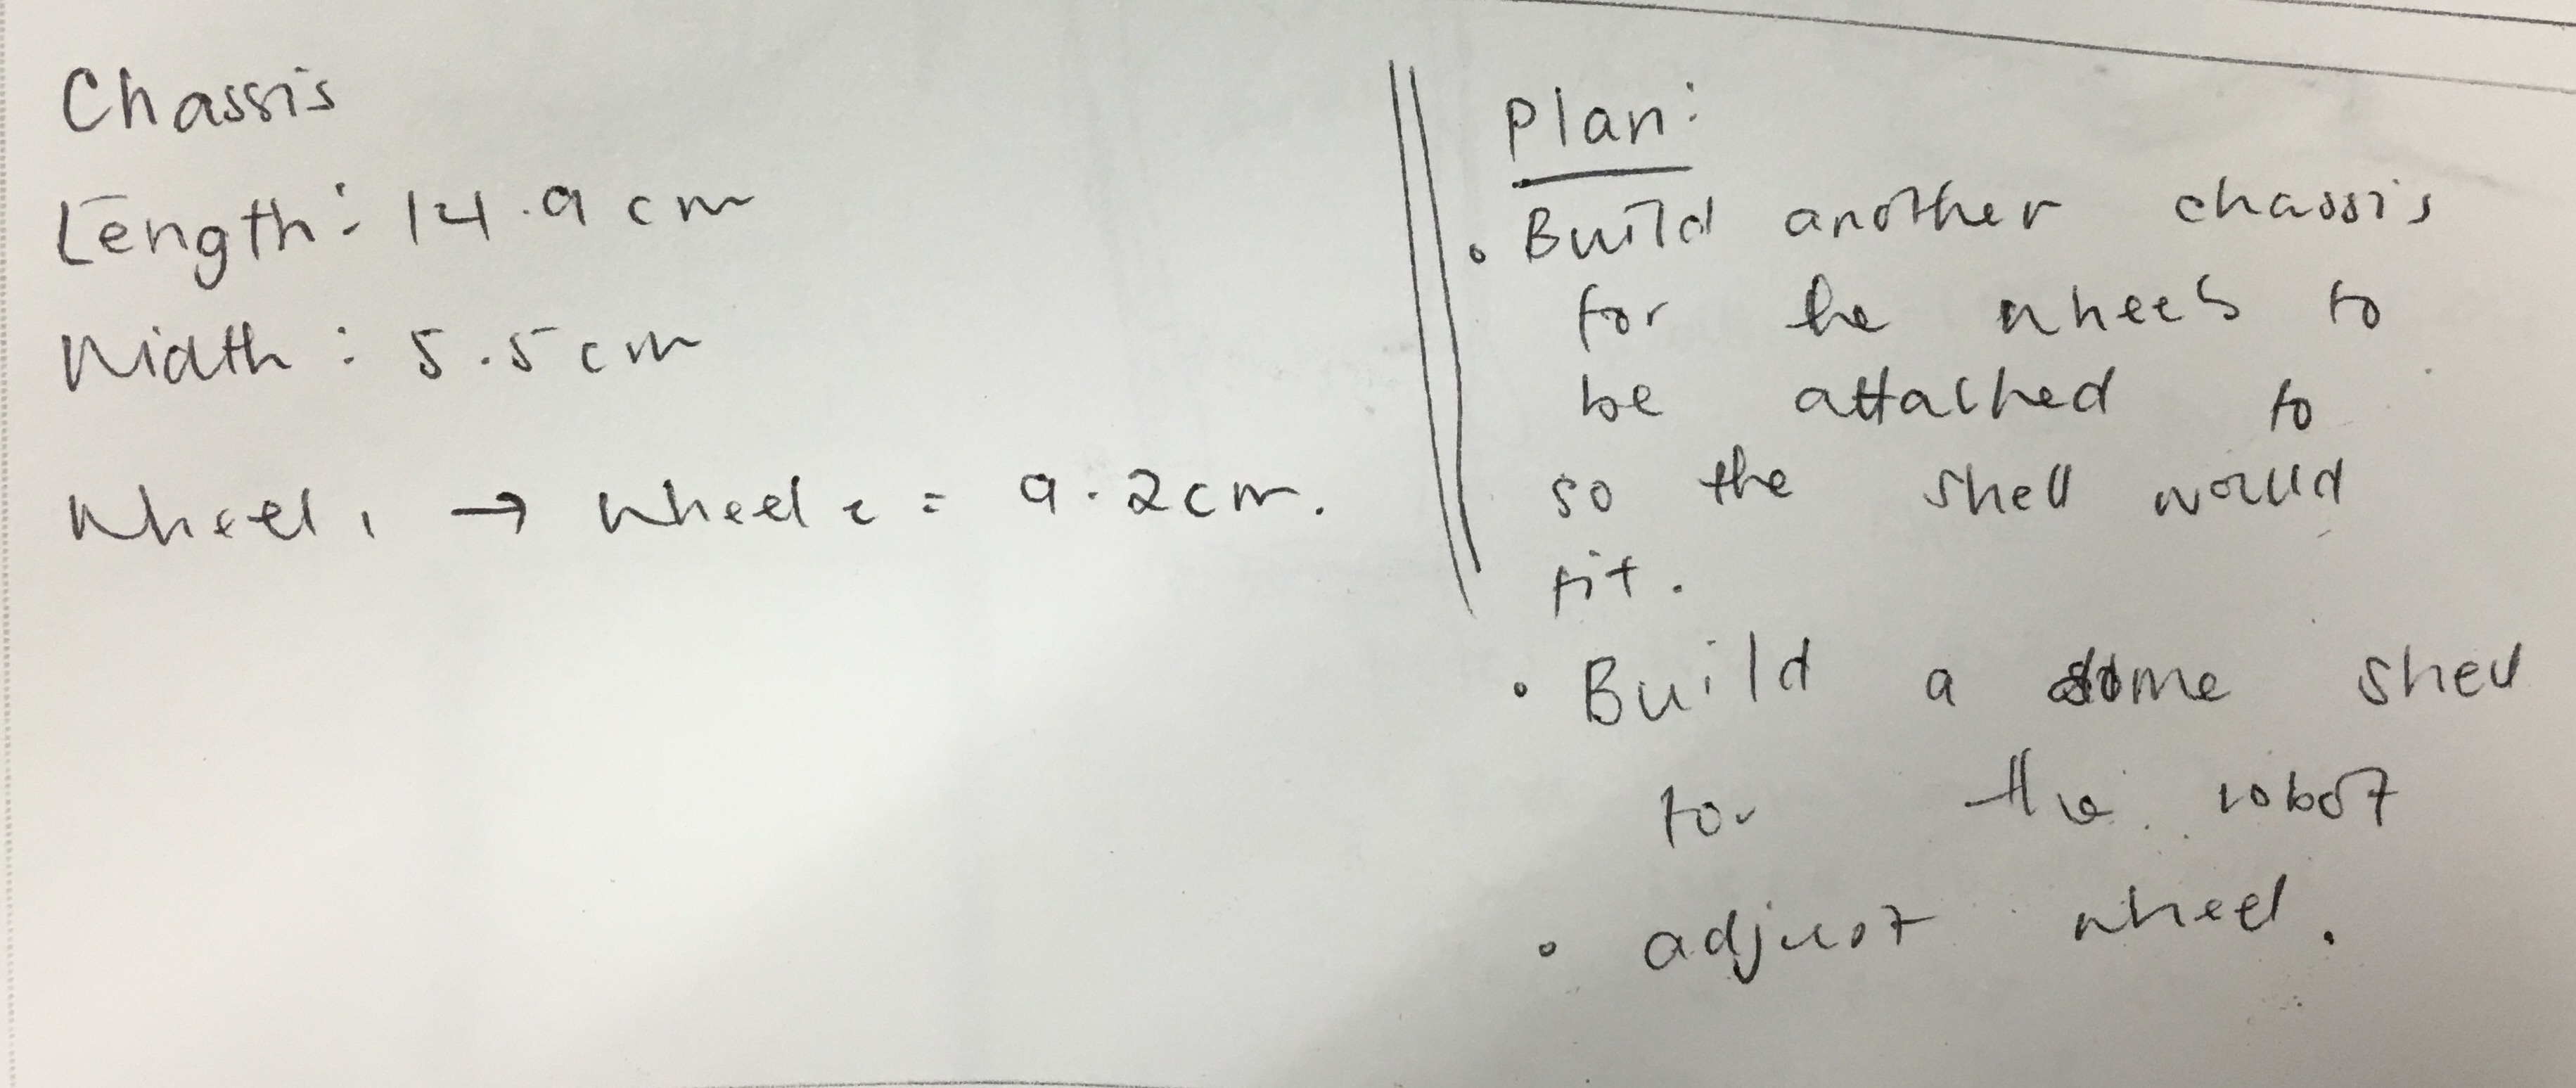 Chassis
Length: 14.9 cm
Width : 5.5 cm
Wheel 1 → Wheel 2 = 9.2cm.
Plan:
• Build another chassis
for the wheels to
be attached to
so the shell would
fit.
• Build a dome shell
for the robot
• adjust wheel.